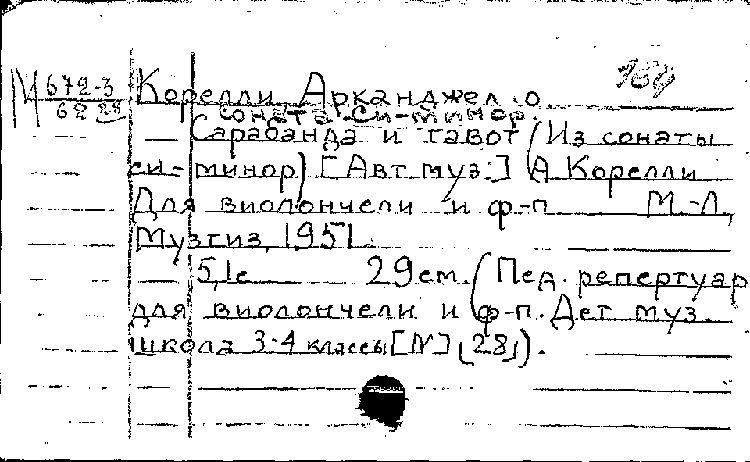 М 672-3
68 28
Корелли Арканджело
соната си-минор.
Сарабанда и гавот (Из сонаты
си-минор) [Авт муз:] А Корелли
Для виолончели и ф-п М.-Л.,
Музгиз, 1951.
5,1с 29см. (Пед. репертуар
для виолончели и ф-п. Дет муз
школа 3-4 классы [N] (28)).